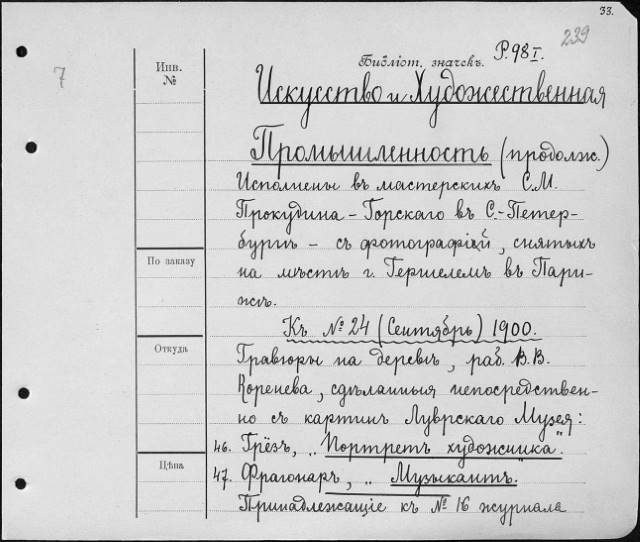 33.
239
7
Инв. №
Библіот. значекъ. Р. 98 I.
Искусство и Художественная
Промышленность (продолж.)
Исполнены въ мастерскихъ С.М.
Прокудина-Горскаго въ С.-Петер-
бургѣ - съ фотографій, снятыхъ
По заказу
на мѣстѣ г. Гершелемъ въ Пари-
жѣ.
Къ № 24 (Сентябрь) 1900.
Откуда
Гравюры на деревѣ, раб. В.В.
Коренева, сдѣланныя непосредствен-
но съ картинъ Луврскаго Музея:
46. Грёзъ, „Портретъ художника".
Цѣна
47. Фрагонаръ, „Музыкантъ.
Принадлежащіе къ № 16 журнала